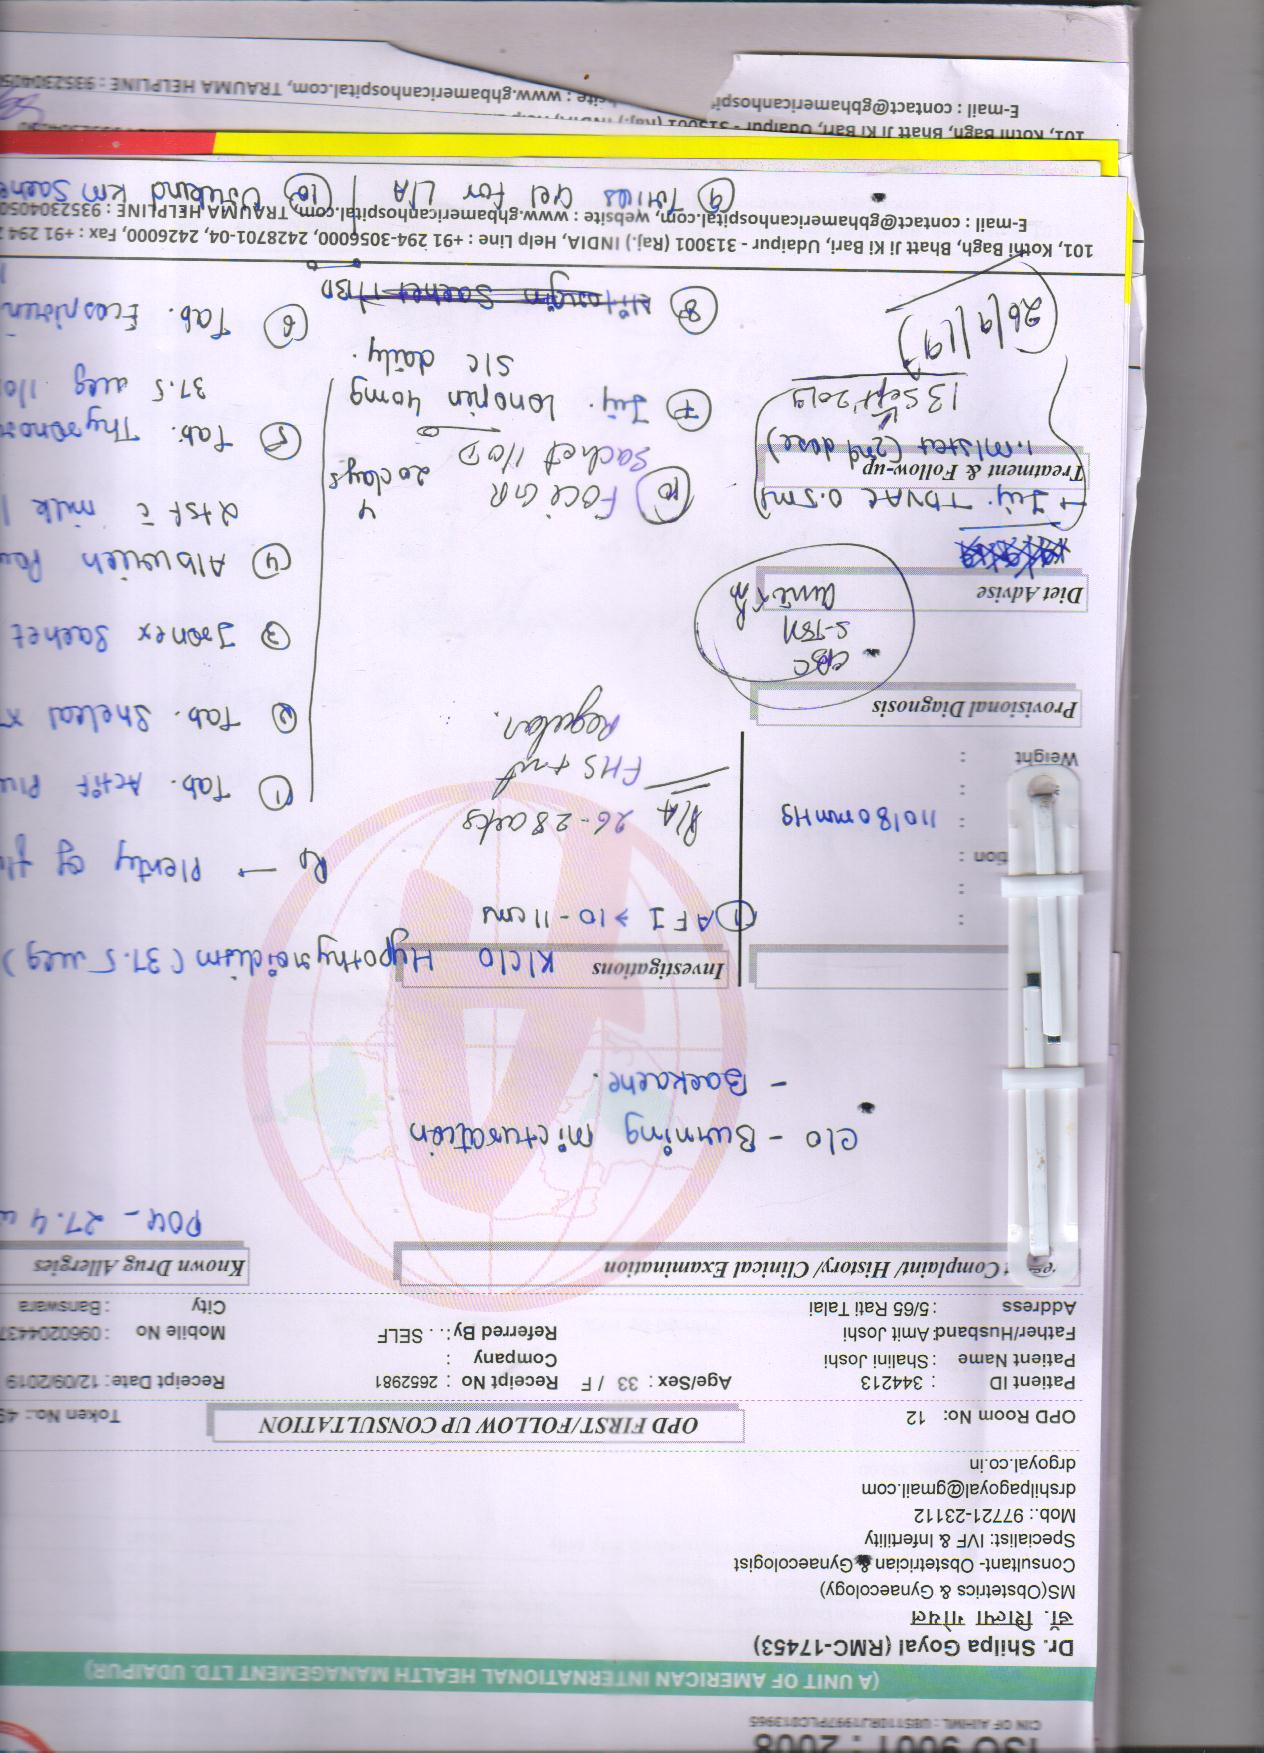 ISO 9001 : 2008
CIN OF AIHML : U85110RJ1997PLC013965
(A UNIT OF AMERICAN INTERNATIONAL HEALTH MANAGEMENT LTD. UDAIPUR)
Dr. Shilpa Goyal (RMC-17453)
डॉ. शिल्पा गोयल
MS(Obstetrics & Gynaecology)
Consultant- Obstetrician & Gynaecologist
Specialist: IVF & Infertility
Mob.: 97721-23112
drshilpagoyal@gmail.com
drgoyal.co.in
OPD Room No: 12
OPD FIRST/FOLLOW UP CONSULTATION
Token No.: 49
Patient ID : 344213
Age/Sex : 33 / F
Receipt No : 2652981
Receipt Date: 12/09/2019
Patient Name : Shalini Joshi
Company :
Father/Husband: Amit Joshi
Referred By: . . SELF
Mobile No : 0960204437
Address : 5/65 Rati Talai
City : Banswara
Complaint/ History/ Clinical Examination
Known Drug Allergies
POG - 27.4 w
C/O - Burning micturation
- Backache.
Investigations
K/C/O Hypothyroidism (37.5 mcg)
① AFI > 10-11 cms
Rx → Plenty of
P/A 26-28 wks
FHS + nt
Regular.
110/80 mmHg
Weight :
Provisional Diagnosis
CBC
S-TSH
Diet Advise
→ Inj. TDVAC 0.5ml
Treatment & Follow-up
I.M/Stat (2nd dose)
13 Sept' 2019
26/9/19
① Tab. Actif Plu
② Tab. Shelcal XT
③ Isonex Sachet
④ Alburich Pow
2tsf c milk
⑤ Tab. Thyronorm
37.5 mcg 1/o
⑥ Tab. Ecosprin
⑩ FOCE GR
Sachet 1/OD
20 days
⑦ Inj. Lonopin 40mg
S/C daily.
⑧ Sachet 1/BD
101, Kothi Bagh, Bhatt Ji Ki Bari, Udaipur - 313001 (Raj.) INDIA, Help Line : +91 294-3056000, 2428701-04, 2426000, Fax : +91 294
E-mail : contact@gbhamericanhospital.com, website : www.gbhamericanhospital.com, TRAUMA HELPLINE : 9352304050
⑨ Gel for L/A
⑩ KM Sache
101, Kothi Bagh, Bhatt Ji Ki Bari, Udaipur - 313001 (Raj.)
E-mail : contact@gbhamericanhospi
site : www.gbhamericanhospital.com, TRAUMA HELPLINE : 9352304050